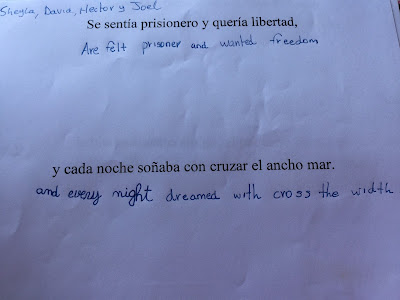 Sheyla, David, Hector y Joel
Se sentía prisionero y quería libertad,
Are felt prisoner and wanted freedom
y cada noche soñaba con cruzar el ancho mar.
and every night dreamed with cross the width